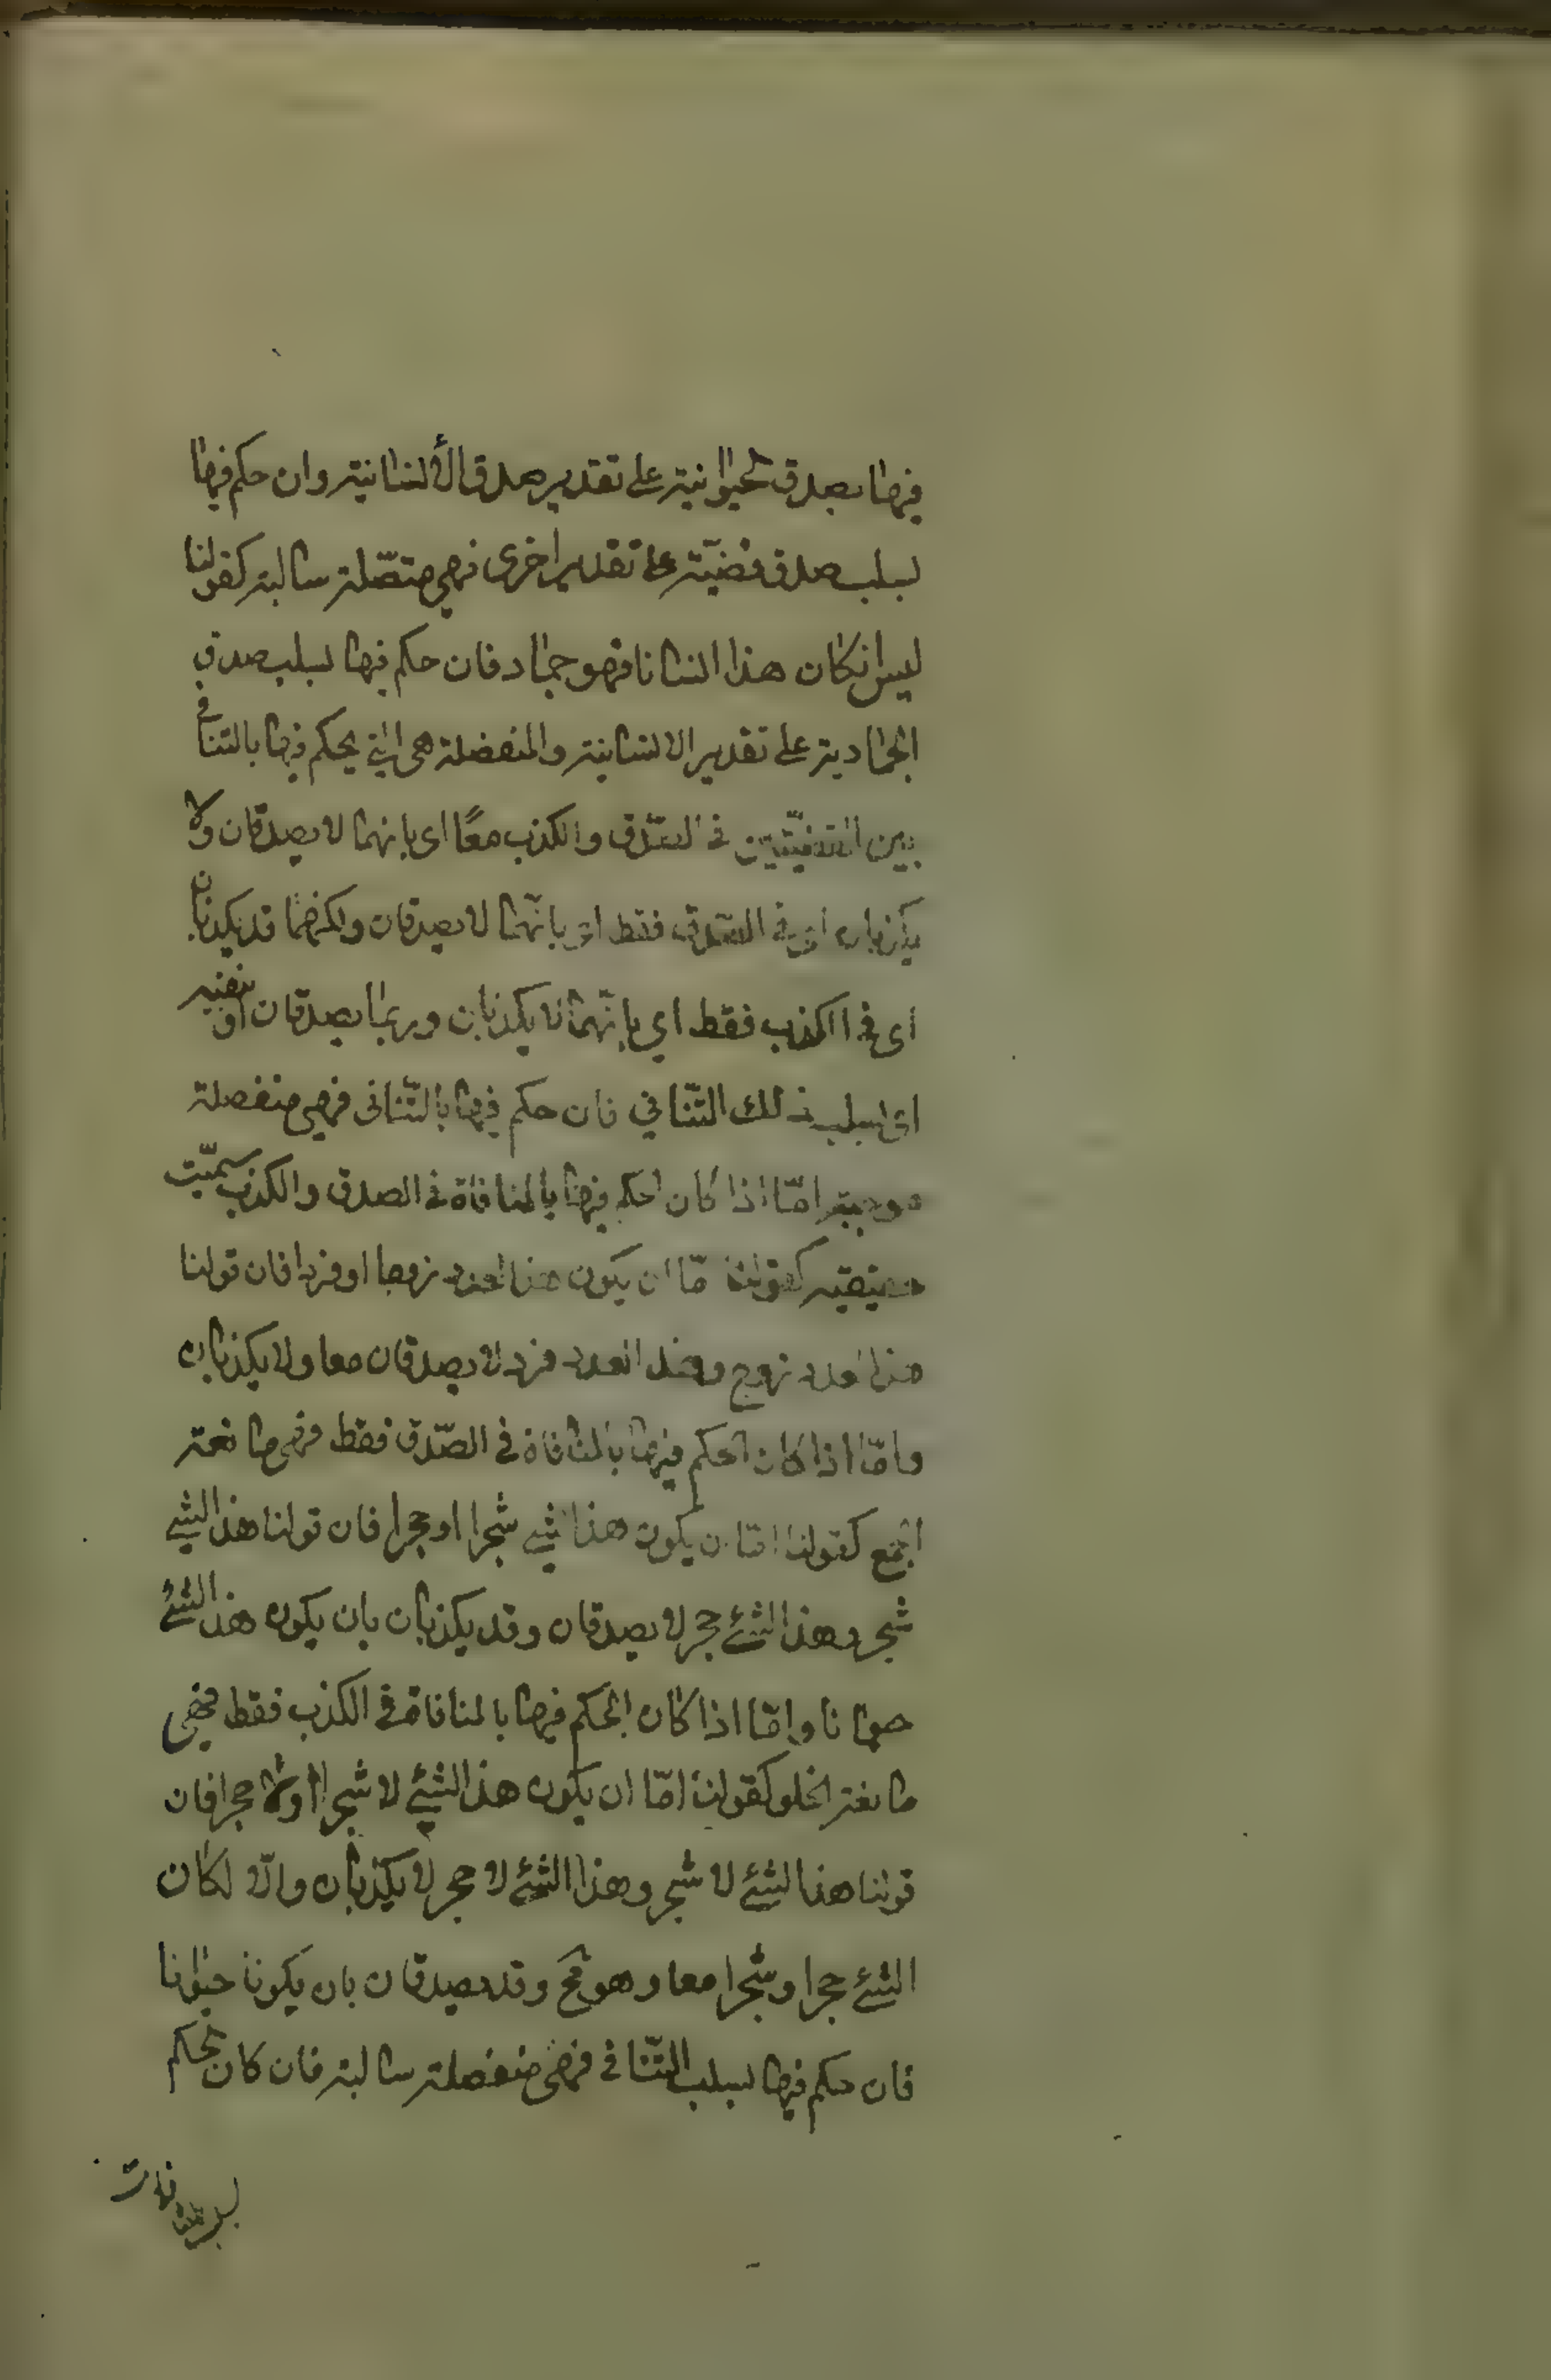 فيها بصدق الحيوانية على تقدير صدق الأنسانية وان حكم فيها
بسلب صدق قضيّة على تقدير اخرى فهي متصّلة سالبة كقولنا
ليس ان كان هذا انسانا فهو جماد فان حكم فيها بسلب صدق
الجمادية على تقدير الانسانية والمنفصلة هى التي يحكم فيها بالتنافي
بين القضيّتين في الصّدق والكذب معًا اى بانهما لا يصدقان ولا
يكذبان اى في الصّدق فقط اى بانّهما لا يصدقان ولكنهما قد يكذبان
اى في الكذب فقط اي بانّهما لا يكذبان وربما يصدقان او بنفيه
اى بسلب ذلك التّنافي فان حكم فيها بالتّنافى فهي منفصلة
موجبة امّا اذا كان الحكم فيها بالمنافاة في الصدق والكذب سمّيت
حقيقية كقولنا امّا ان يكون هذا العدد زوجا او فردا فان قولنا
هذا العدد زوج وهذا العدد فرد لا يصدقان معا ولا يكذبان
وامّا اذا كان الحكم فيها بالمنافاة في الصّدق فقط فهى مانعة
الجمع كقولنا امّا ان يكون هذا الشيء شجرا او حجرا فان قولنا هذا الشيء
شجر وهذا الشئ حجر لا يصدقان وقد يكذبان بان يكون هذا الشئ
حيوانا وامّا اذا كان الحكم فيها بالمنافاة في الكذب فقط فهي
مانعة الخلو كقولنا امّا ان يكون هذا الشئ لا شجرا او لا حجرا فان
قولنا هذا الشئ لا شجر وهذا الشئ لا حجر لا يكذبان والّا لكان
الشئ حجرا وشجرا معا وهو مح وقد يصدقان بان يكونا حيوانا
فان حكم فيها بسلب التّنافي فهى منفصلة سالبة فان كان الحكم